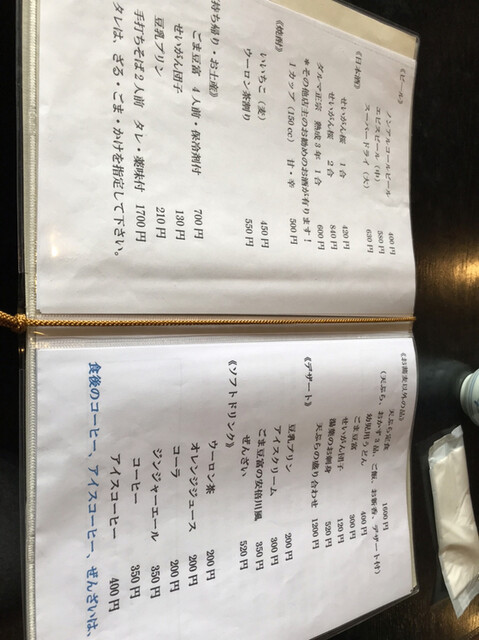 《ビール》
ノンアルコールビール 400円
エビスビール(中) 580円
スーパードライ(大) 630円
《日本酒》
せいがん桜 1合 420円
せいがん桜 2合 840円
ダルマ正宗 熟成3年 1合 600円
*その他店主のお勧めのお酒が有ります!
1カップ(150cc) 甘・辛 500円
《焼酎》
いいちこ(麦) 450円
ウーロン茶割り 550円
持ち帰り・お土産》
ごま豆富 4人前・保冷剤付 700円
せいがん団子 130円
豆乳プリン 210円
手打ちそば2人前 タレ・薬味付 1700円
タレは、ざる・ごま・かけを指定して下さい。
《お蕎麦以外の品》
天ぷら定食 1600円
(天ぷら、おかず3品、ご飯、お新香、デザート付)
幼児用うどん 400円
ごま豆富 300円
せいがん団子 120円
湯葉のお刺身 520円
天ぷらの盛り合わせ 1200円
《デザート》
豆乳プリン 200円
アイスクリーム 300円
ごま豆富の安倍川風 350円
ぜんざい 520円
《ソフトドリンク》
ウーロン茶 200円
オレンジジュース 200円
コーラ 200円
ジンジャーエール 350円
コーヒー 350円
アイスコーヒー 400円
食後のコーヒー、アイスコーヒー、ぜんざいは、